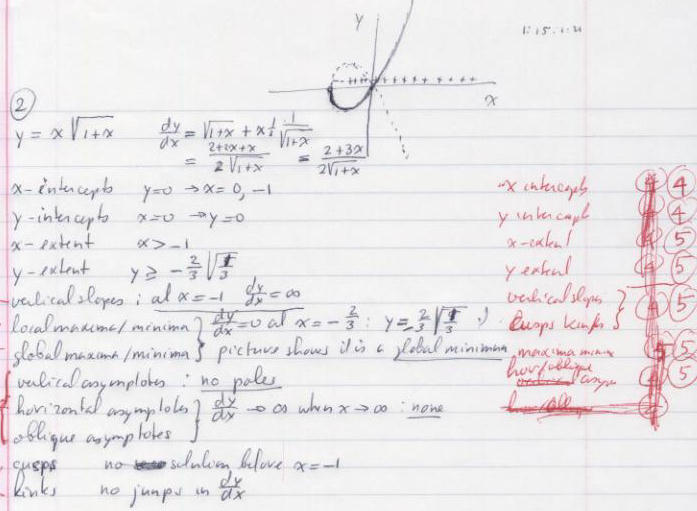 y
1:15.1:21
x
②
y = x √1+x dy/dx = √1+x + x ½ 1/√1+x
= 2+2x+x / 2√1+x = 2+3x / 2√1+x
x-intercepts y=0 → x = 0, -1
y-intercepts x=0 → y=0
x-extent x > -1
y-extent y ≥ -2/3 √1/3
vertical slopes : at x = -1 dy/dx = ∞
local maxima/minima } dy/dx = 0 at x = -2/3 : y = -2/3 √1/3
global maxima/minima } picture shows it is a global minimum
vertical asymptotes : no poles
horizontal asymptotes } dy/dx → ∞ when x → ∞ : none
oblique asymptotes }
cusps no solution below x = -1
kinks no jumps in dy/dx
x intercepts 4
y intercept 4
x-extent 5
y extent 5
vertical slopes }
cusps kinks } 5
maxima minima 5
hor/oblique
asymp 5